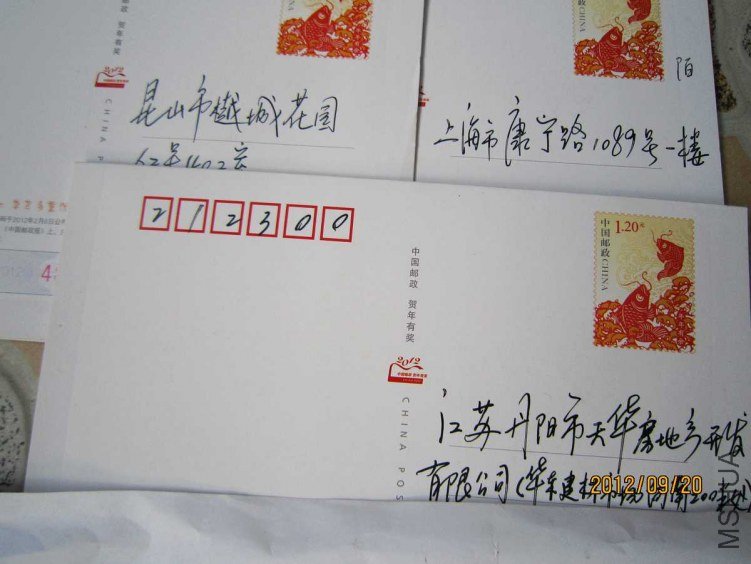 2012
CHINA POS
昆山市樾城花园
62号1402室
陌
上海市康宁路1089号一楼
212300
中国邮政 贺年有奖
中国邮政CHINA
1.20元
2012
中国邮政 贺年有奖
CHINA POS
江苏丹阳市天华房地产开发
有限公司(华东建材市场向南200米处)
2012/09/20